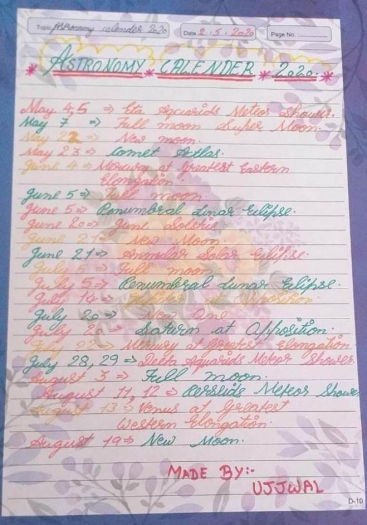 Topic Astronomy calender 2020 Date 2.5.2020 Page No.
* ASTRONOMY * CALENDER * 2020. *
May 4,5 ⇒ Eta Aquarids Meteor Shower.
May 7 ⇒ Full moon Super Moon.
May 22 ⇒ New moon.
May 23 ⇒ Comet Atlas.
June 4 ⇒ Mercury at Greatest Eastern
Elongation
June 5 ⇒ Full moon
June 5 ⇒ Penumbral Lunar Eclipse.
June 20 ⇒
June 21 ⇒ New Moon
June 21 ⇒ Annular Solar Eclipse.
July 5 ⇒ Full moon
July 5 ⇒ Penumbral Lunar Eclipse.
July 14 ⇒ at Opposition
July 20 ⇒ New
July ⇒ Saturn at Opposition.
July 22 ⇒ Mercury at Greatest Elongation
July 28, 29 ⇒ Delta Aquarids Meteor Shower
August 3 ⇒ Full moon.
August 11, 12 ⇒ Meteors Shower
August 13 ⇒ Venus at Greatest
Western Elongation.
August 19 ⇒ New Moon.
MADE BY:-
UJJWAL
D-10